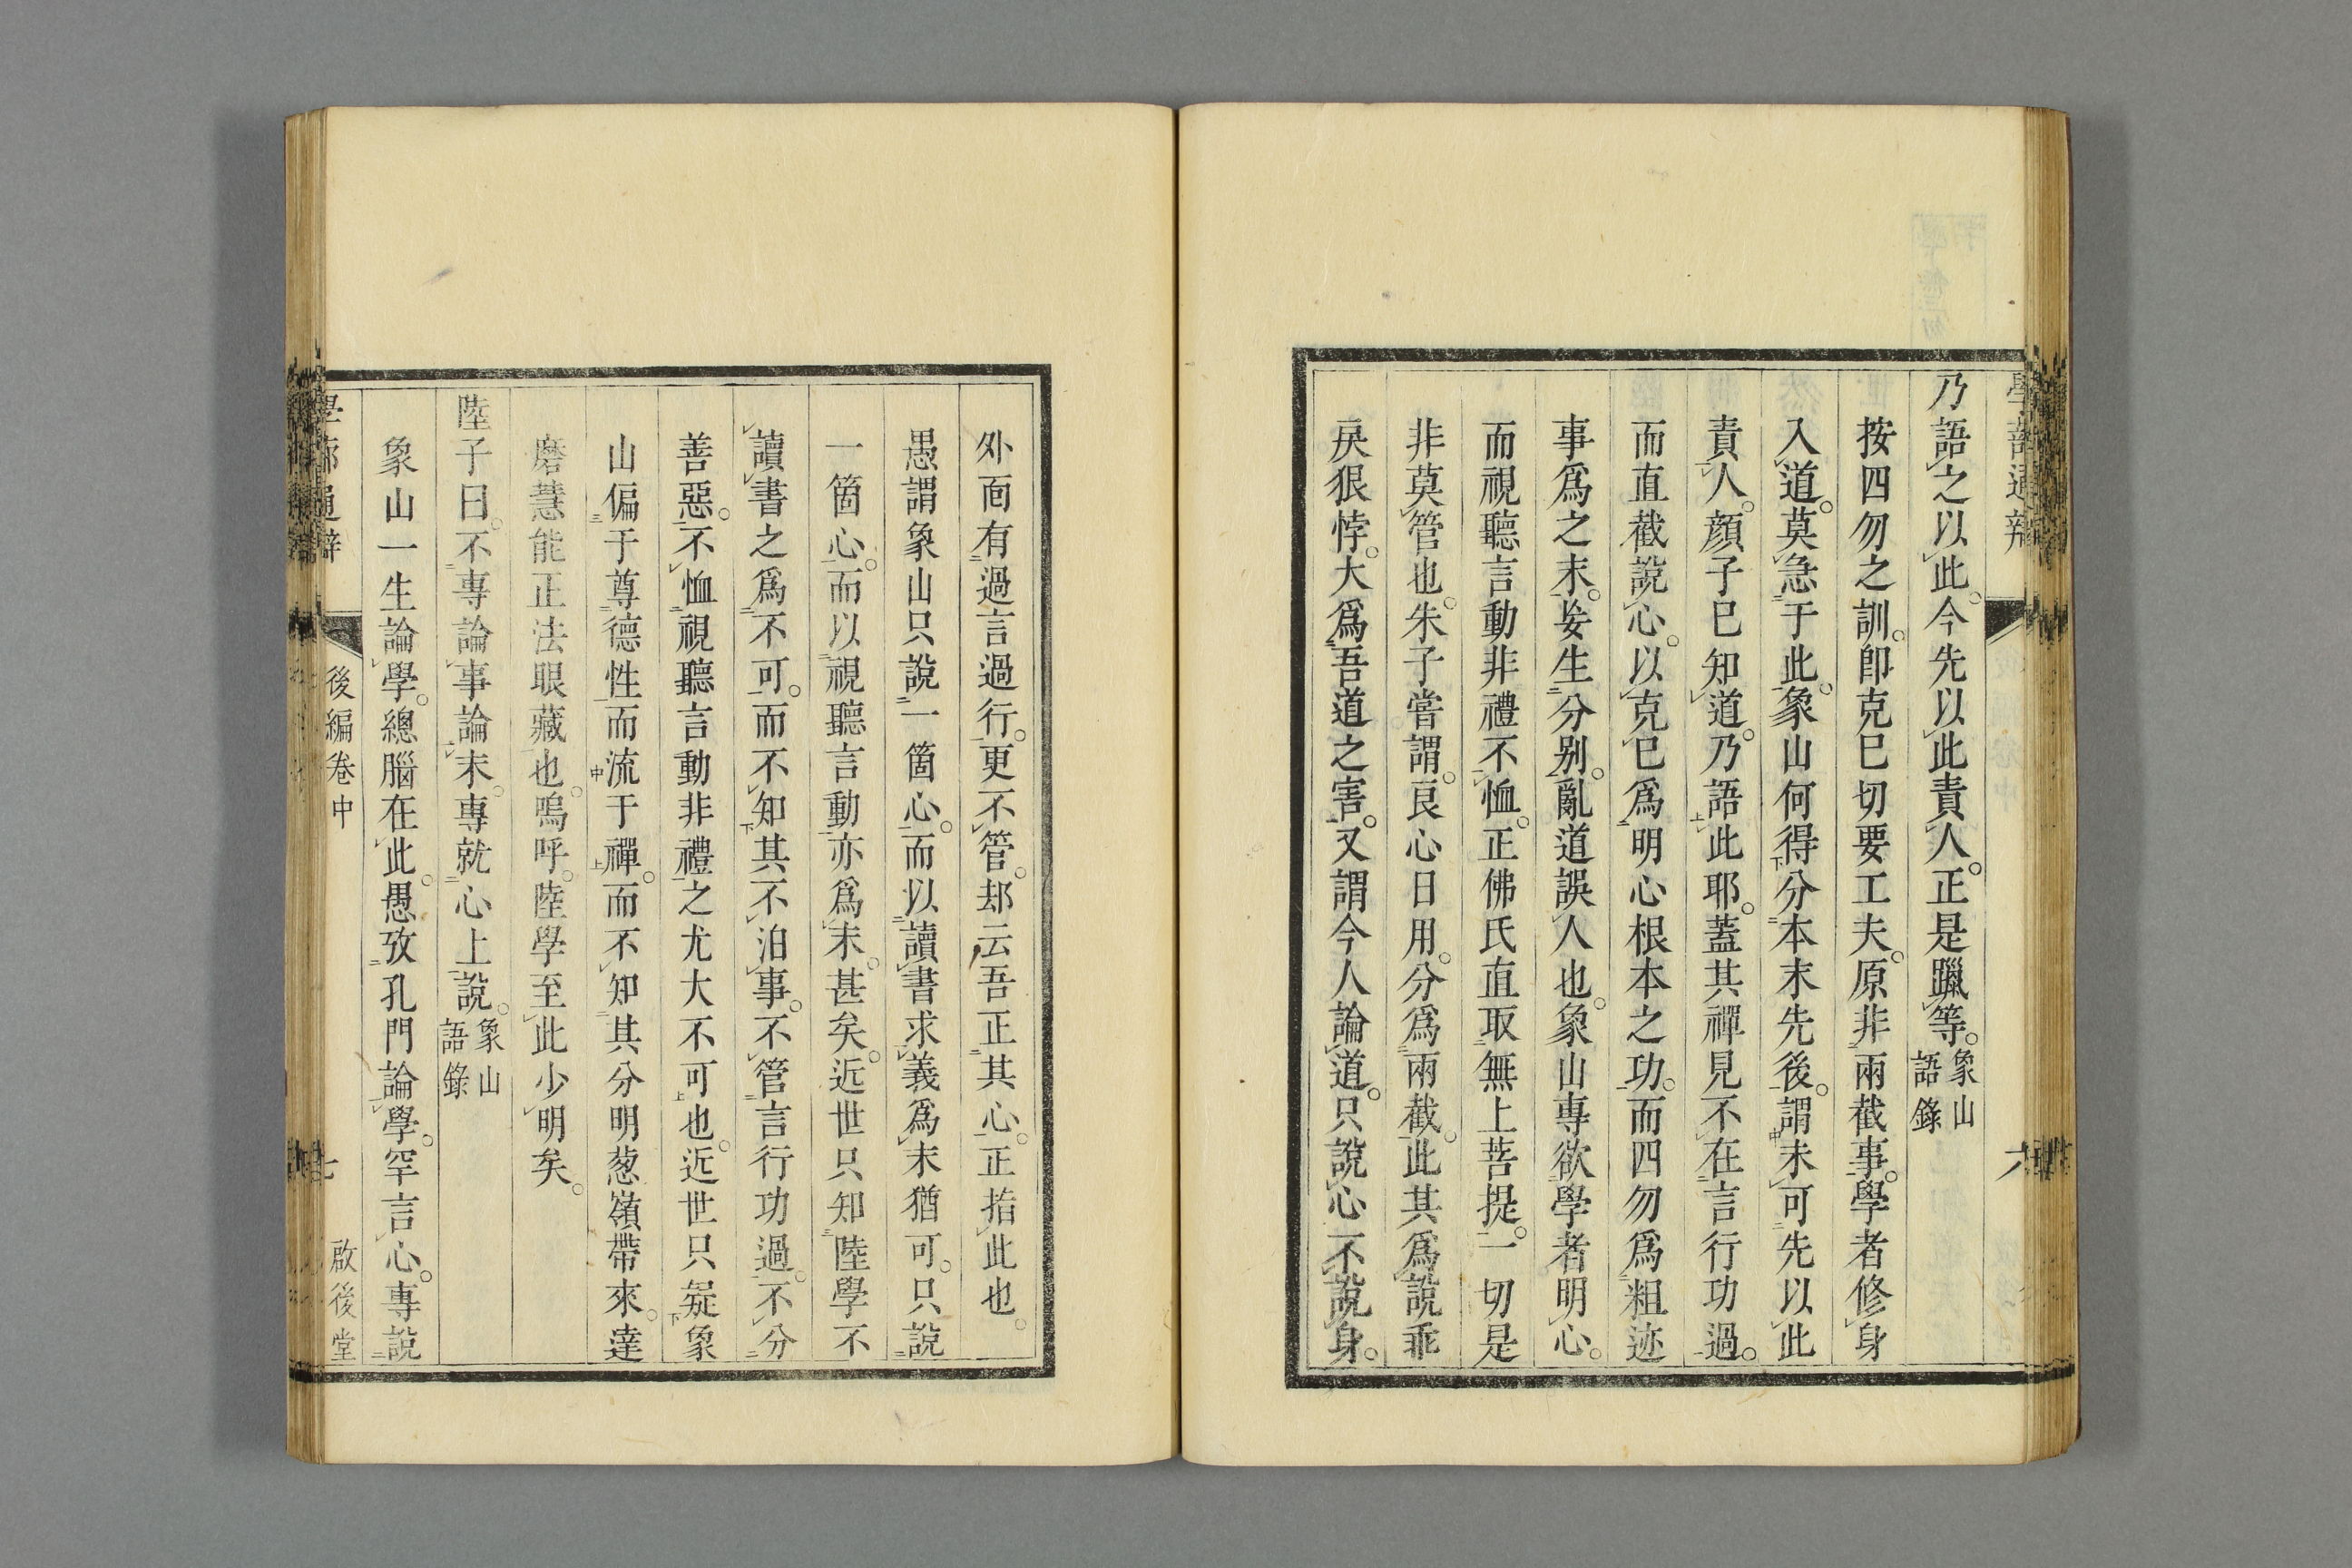 學蔀通辨
六
乃語之以此。今先以此責人。正是躐等。象山語錄
按四勿之訓。卽克巳切要工夫。原非兩截事。學者修身
入道。莫急于此。象山何得分本末先後。謂未可先以此
責人。顔子巳知道。乃語此耶。蓋其禪見不在言行功過。
而直截說心。以克巳爲明心根本之功。而四勿爲粗迹
事爲之末。妄生分别。亂道誤人也。象山專欲學者明心。
而視聽言動非禮不恤。正佛氏直取無上菩提。一切是
非莫管也。朱子嘗謂。良心日用。分爲兩截。此其爲說乖
戾狠悖。大爲吾道之害。又謂今人論道。只說心不說身。
外面有過言過行。更不管。却云吾正其心。正指此也。
愚謂象山只說一箇心。而以讀書求義爲末猶可。只說
一箇心。而以視聽言動亦爲末。甚矣。近世只知陸學不
讀書之爲不可。而不知其不泊事。不管言行功過。不分
善惡。不恤視聽言動非禮之尤大不可也。近世只疑象
山偏于尊德性而流于禪。而不知其分明葱嶺帶來。達
磨慧能正法眼藏也。嗚呼。陸學至此少明矣。
陸子曰。不專論事論末。專就心上說。象山語錄
象山一生論學。總腦在此。愚攷孔門論學。罕言心。專說
學蔀通辨
後編卷中
七
啟後堂